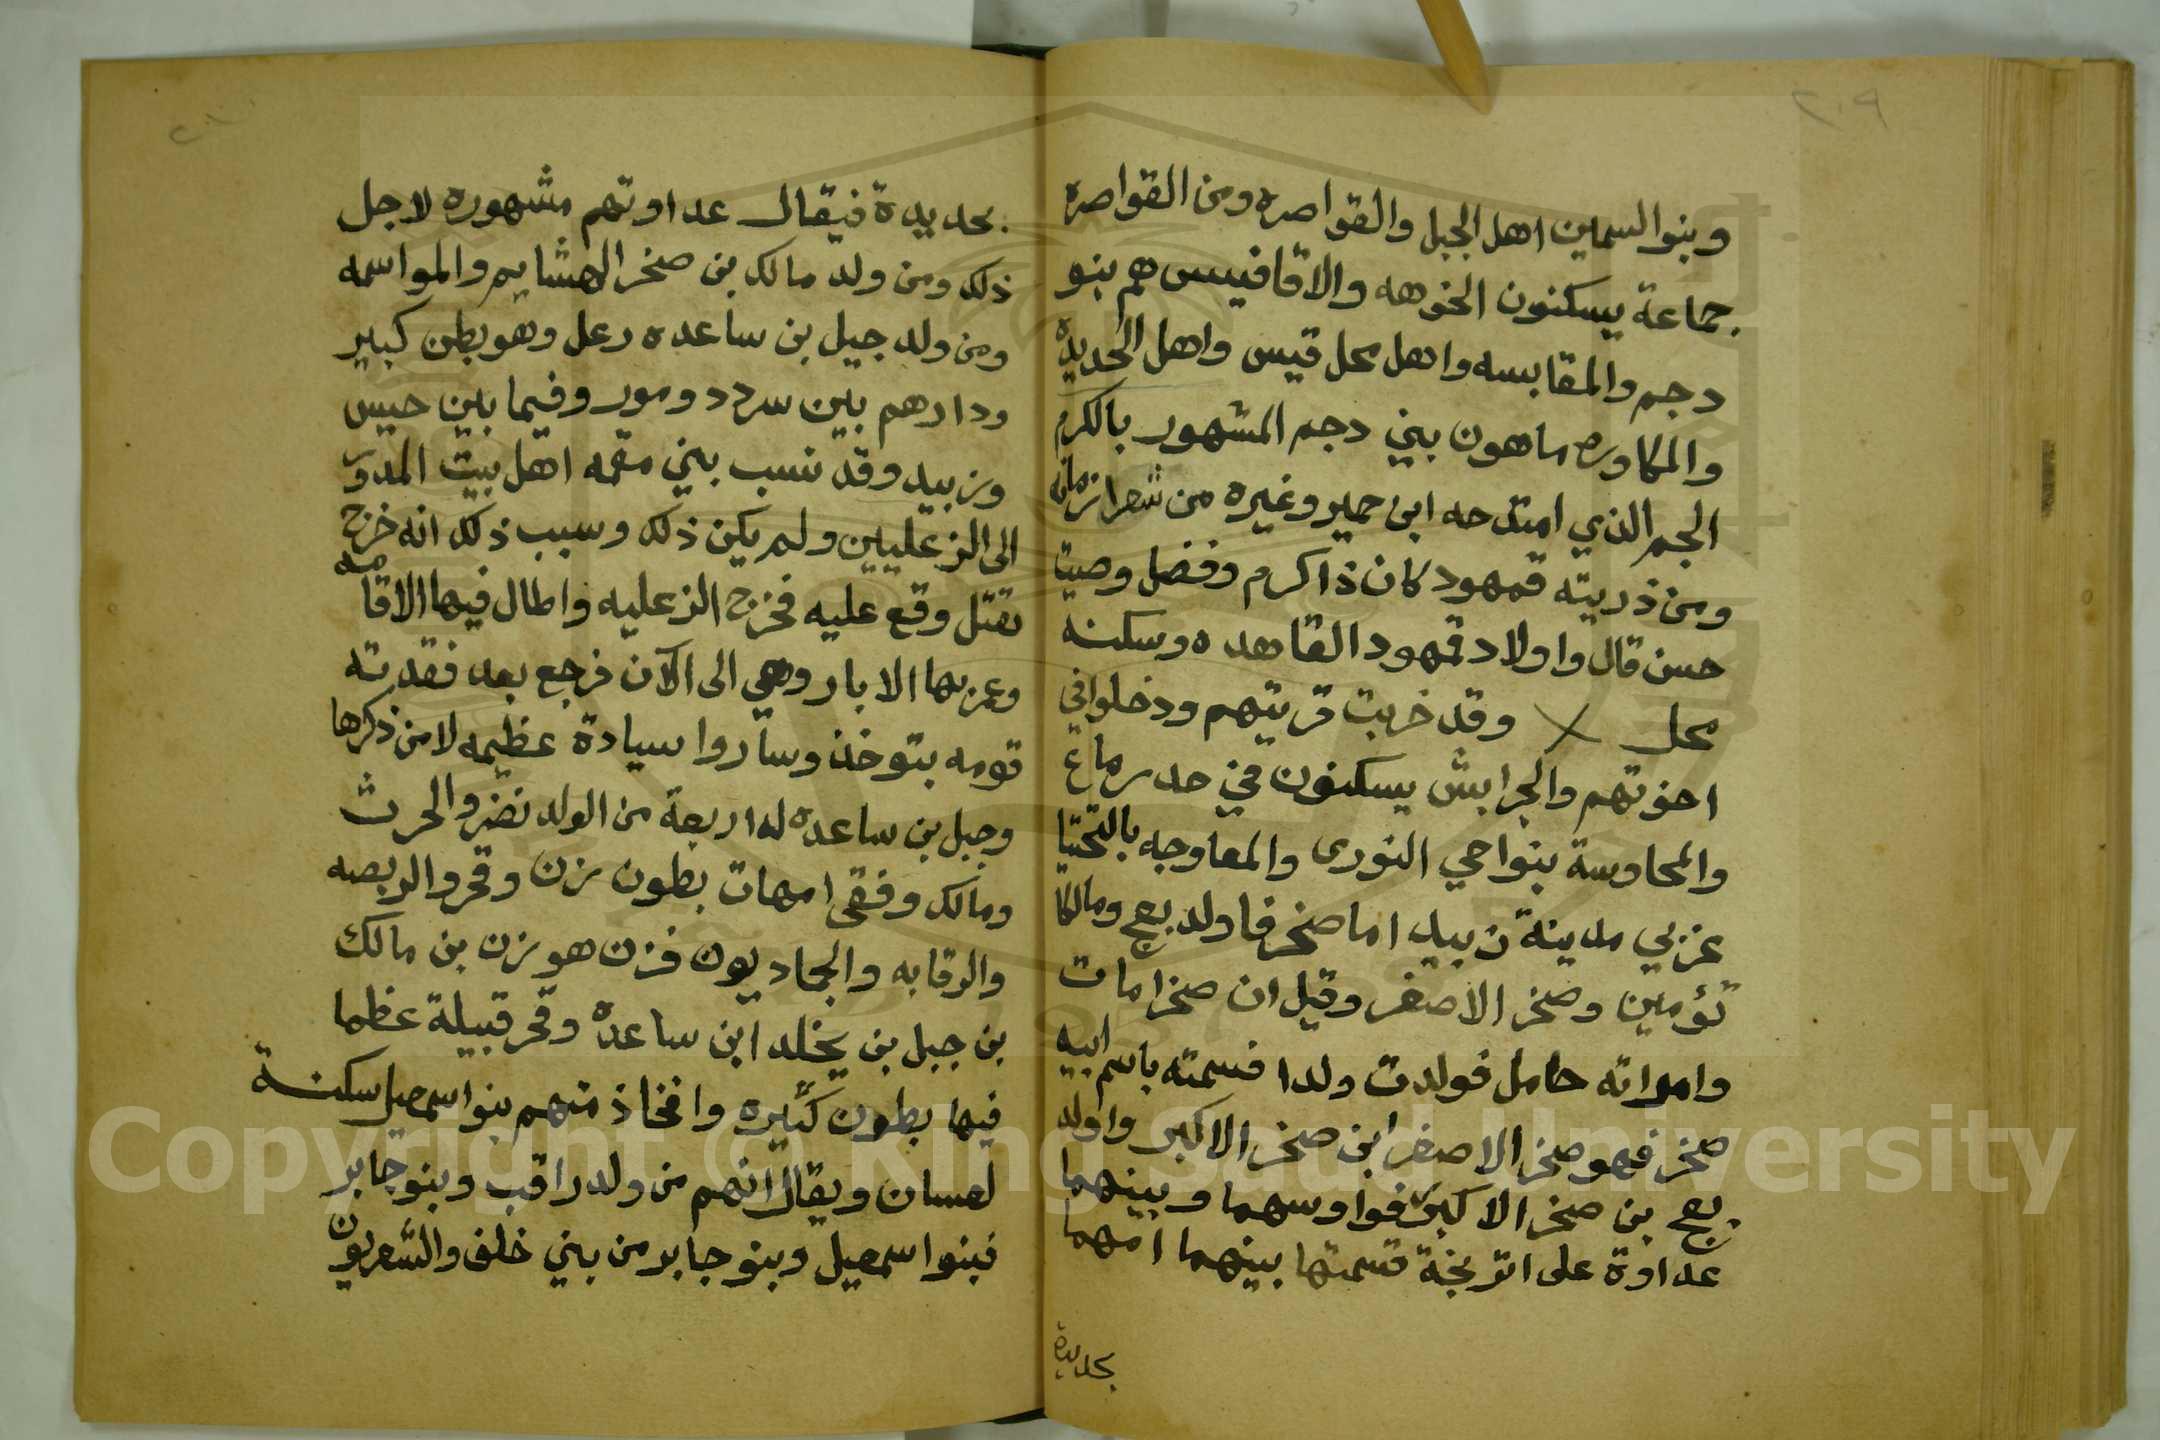 ٢٠٩
وبنوا السماين اهل الجبل والقواصره ومن القواصره
جماعة يسكنون الخوهه والاقافيس هم بنو
دجم والمقابسه واهل محل قيس واهل الحديدة
والمكاوره ماهون بني دجم المشهور بالكرم
الجم الذي امتدحه ابن حمير وغيره من شعرا زمانه
ومن ذريته قمهود كان ذا كرم وفضل وصيتا
حسن قال واولاد قمهود القاهده وسكنه
محل وقد خربت قريتهم ودخلوا في
اخوتهم والجرابش يسكنون في حد رماع
والمحاوسة بنواحي النورى والمعاوجه بالتحيتا
غربي مدينة زبيد اما صخر فاولد بعج ومالكا
تؤمين وصخر الاصغر وقيل ان صخرا مات
وامراته حامل فولدت ولدا فسمته باسم ابيه
صخر فهو صخر الاصغر ابن صخر الاكبر واولد
بعج بن صخر الاكبر فوا وسهما وبينهما
عداوة على اترنجة قسمتها بينهما امهما
بحديدة
٢١٠
بحديدة فيقال عداوتهم مشهوره لاجل
ذلك ومن ولد مالك بن صخر الهشايم والمواسمه
ومن ولد جيل بن ساعده رعل وهو بطن كبير
ودارهم بين سردد ومور وفيما بين حيس
وزبيد وقد نسب بني مقمه اهل بيت المدور
الى الزعليين ولم يكن ذلك وسبب ذلك انه خرج
بقتل وقع عليه فخرج الزعليه واطال فيها الاقامه
وعربها الابار وهي الى الآن فرجع بعد فقدته
قومه بتوخذ وساروا سيادة عظيمه لامن ذكرها
وجبل بن ساعده له اربعة من الولد نضر والحرث
ومالك وفقى امهات بطون زن وقحر والربصه
والرقابه والجماديون فزن هو زن بن مالك
بن جبل بن يخلد ابن ساعده وقحر قبيلة عظما
فيها بطون كثيره وافخاذ منهم بنوا سمعيل سكنة
لعسان ويقال انهم من ولد راقب وبنو جابر
فبنوا سمعيل وبنو جابر من بني خلف والشعريون
Copyright © King Saud University